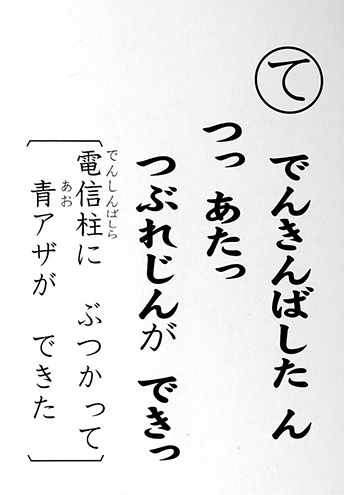 て
でんきんばした ん
つっ あたっ
つぶれじんが できっ
電信柱に ぶつかって
でんしんばしら
青アザが できた
あお